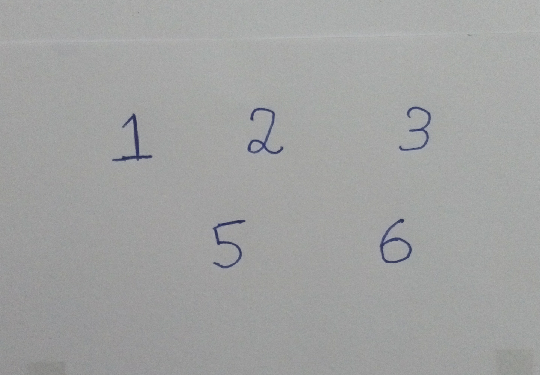 1 2 3
5 6